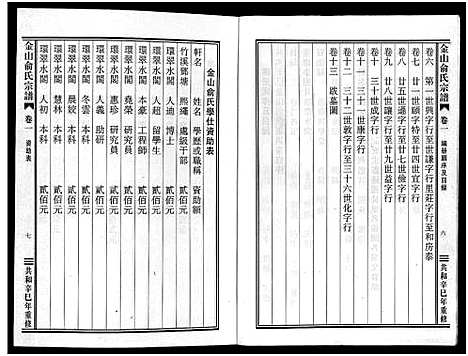 金山俞氏宗譜
卷一
編卷順序及目錄
六
共和辛巳年重修
卷六 第一世興字行至世謙字行里莊字行至和房泰
卷七 廿一世願字特至廿四世宜字行
卷八 廿五世通字行至廿七世檢字行
卷九 廿八世讓字行至廿九世益字行
卷十 三十世成字行
卷十一 三十一世康字行
卷十二 三十二世敦字行至三十六世化字行
卷十三 跋墓圖
金山俞氏學仕資助表
軒名 姓名 學歷或職稱 資助額
竹溪鄧塘 人進 處級干部 貳佰元
環翠水閣 人迪 博士 貳佰元
環翠水閣 人超 留學生 貳佰元
環翠水閣 堯榮 研究員 貳佰元
環翠水閣 惠珍 研究員 貳佰元
環翠水閣 本豪 工程師 貳佰元
環翠水閣 人義 助研 貳佰元
環翠水閣 冬雲 本科 貳佰元
環翠水閣 晨姣 本科 貳佰元
環翠水閣 慧林 本科 貳佰元
環翠水閣 人初 本科 貳佰元
金山俞氏宗譜
卷一
資助表
七
共和辛巳年重修